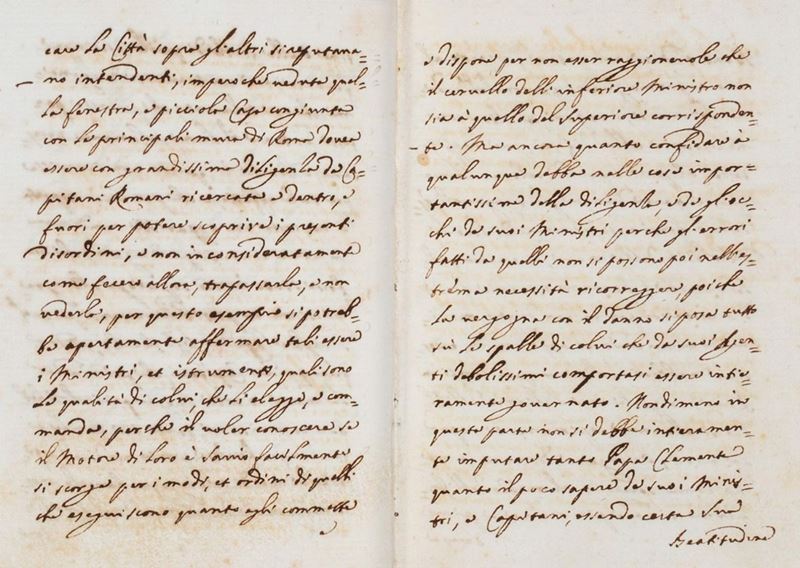 care la Città sopra gl'altri si reputaua=
no intendenti, imperoche ueduta quel=
la fenestra, e picciola Casa congiunta
con le principali mura di Roma douea
essere con grandissima diligenza da Ca=
pitani Romani ricercata e dentro, e
fuori per potere scoprire i presenti
disordini, e non inconsideratamente
come fecero allora, trapassarla, e non
uederla, per questo esempio si potreb=
be apertamente affermare tali essere
i Ministri, et istrumenti, quali sono
le qualità di colui, che li elegge, e com=
manda, perche il uoler conoscere se
il Motore di loro è Sauio facilmente
si scorge per i modi, et ordini di quelli
che eseguiscono quanto egli commette
e
e dispone per non esser raggioneuole che
il ceruello dell'inferiore Ministro non
sia à quello del Superiore corrisponden=
te. Ma ancora quanto confidare à
qualunque debba nelle cose impor=
tantissime della diligenza, e da gl'oc=
chi de suoi Ministri perche gl'errori
fatti da quelli non si possono poi nell'es=
trema necessità ricorreggere poiche
la uergogna con il danno si posa tutto
sù le spalle di colui che da suoi Agen=
ti debolissimi comportasi essere intie=
ramente gouernato. Nondimeno in
questa parte non si debbe intieramen=
te imputare tanto Papa Clemente
quanto il poco sapere de suoi Minis=
tri, e Capitani, essendo certa Sua
Beatitudine